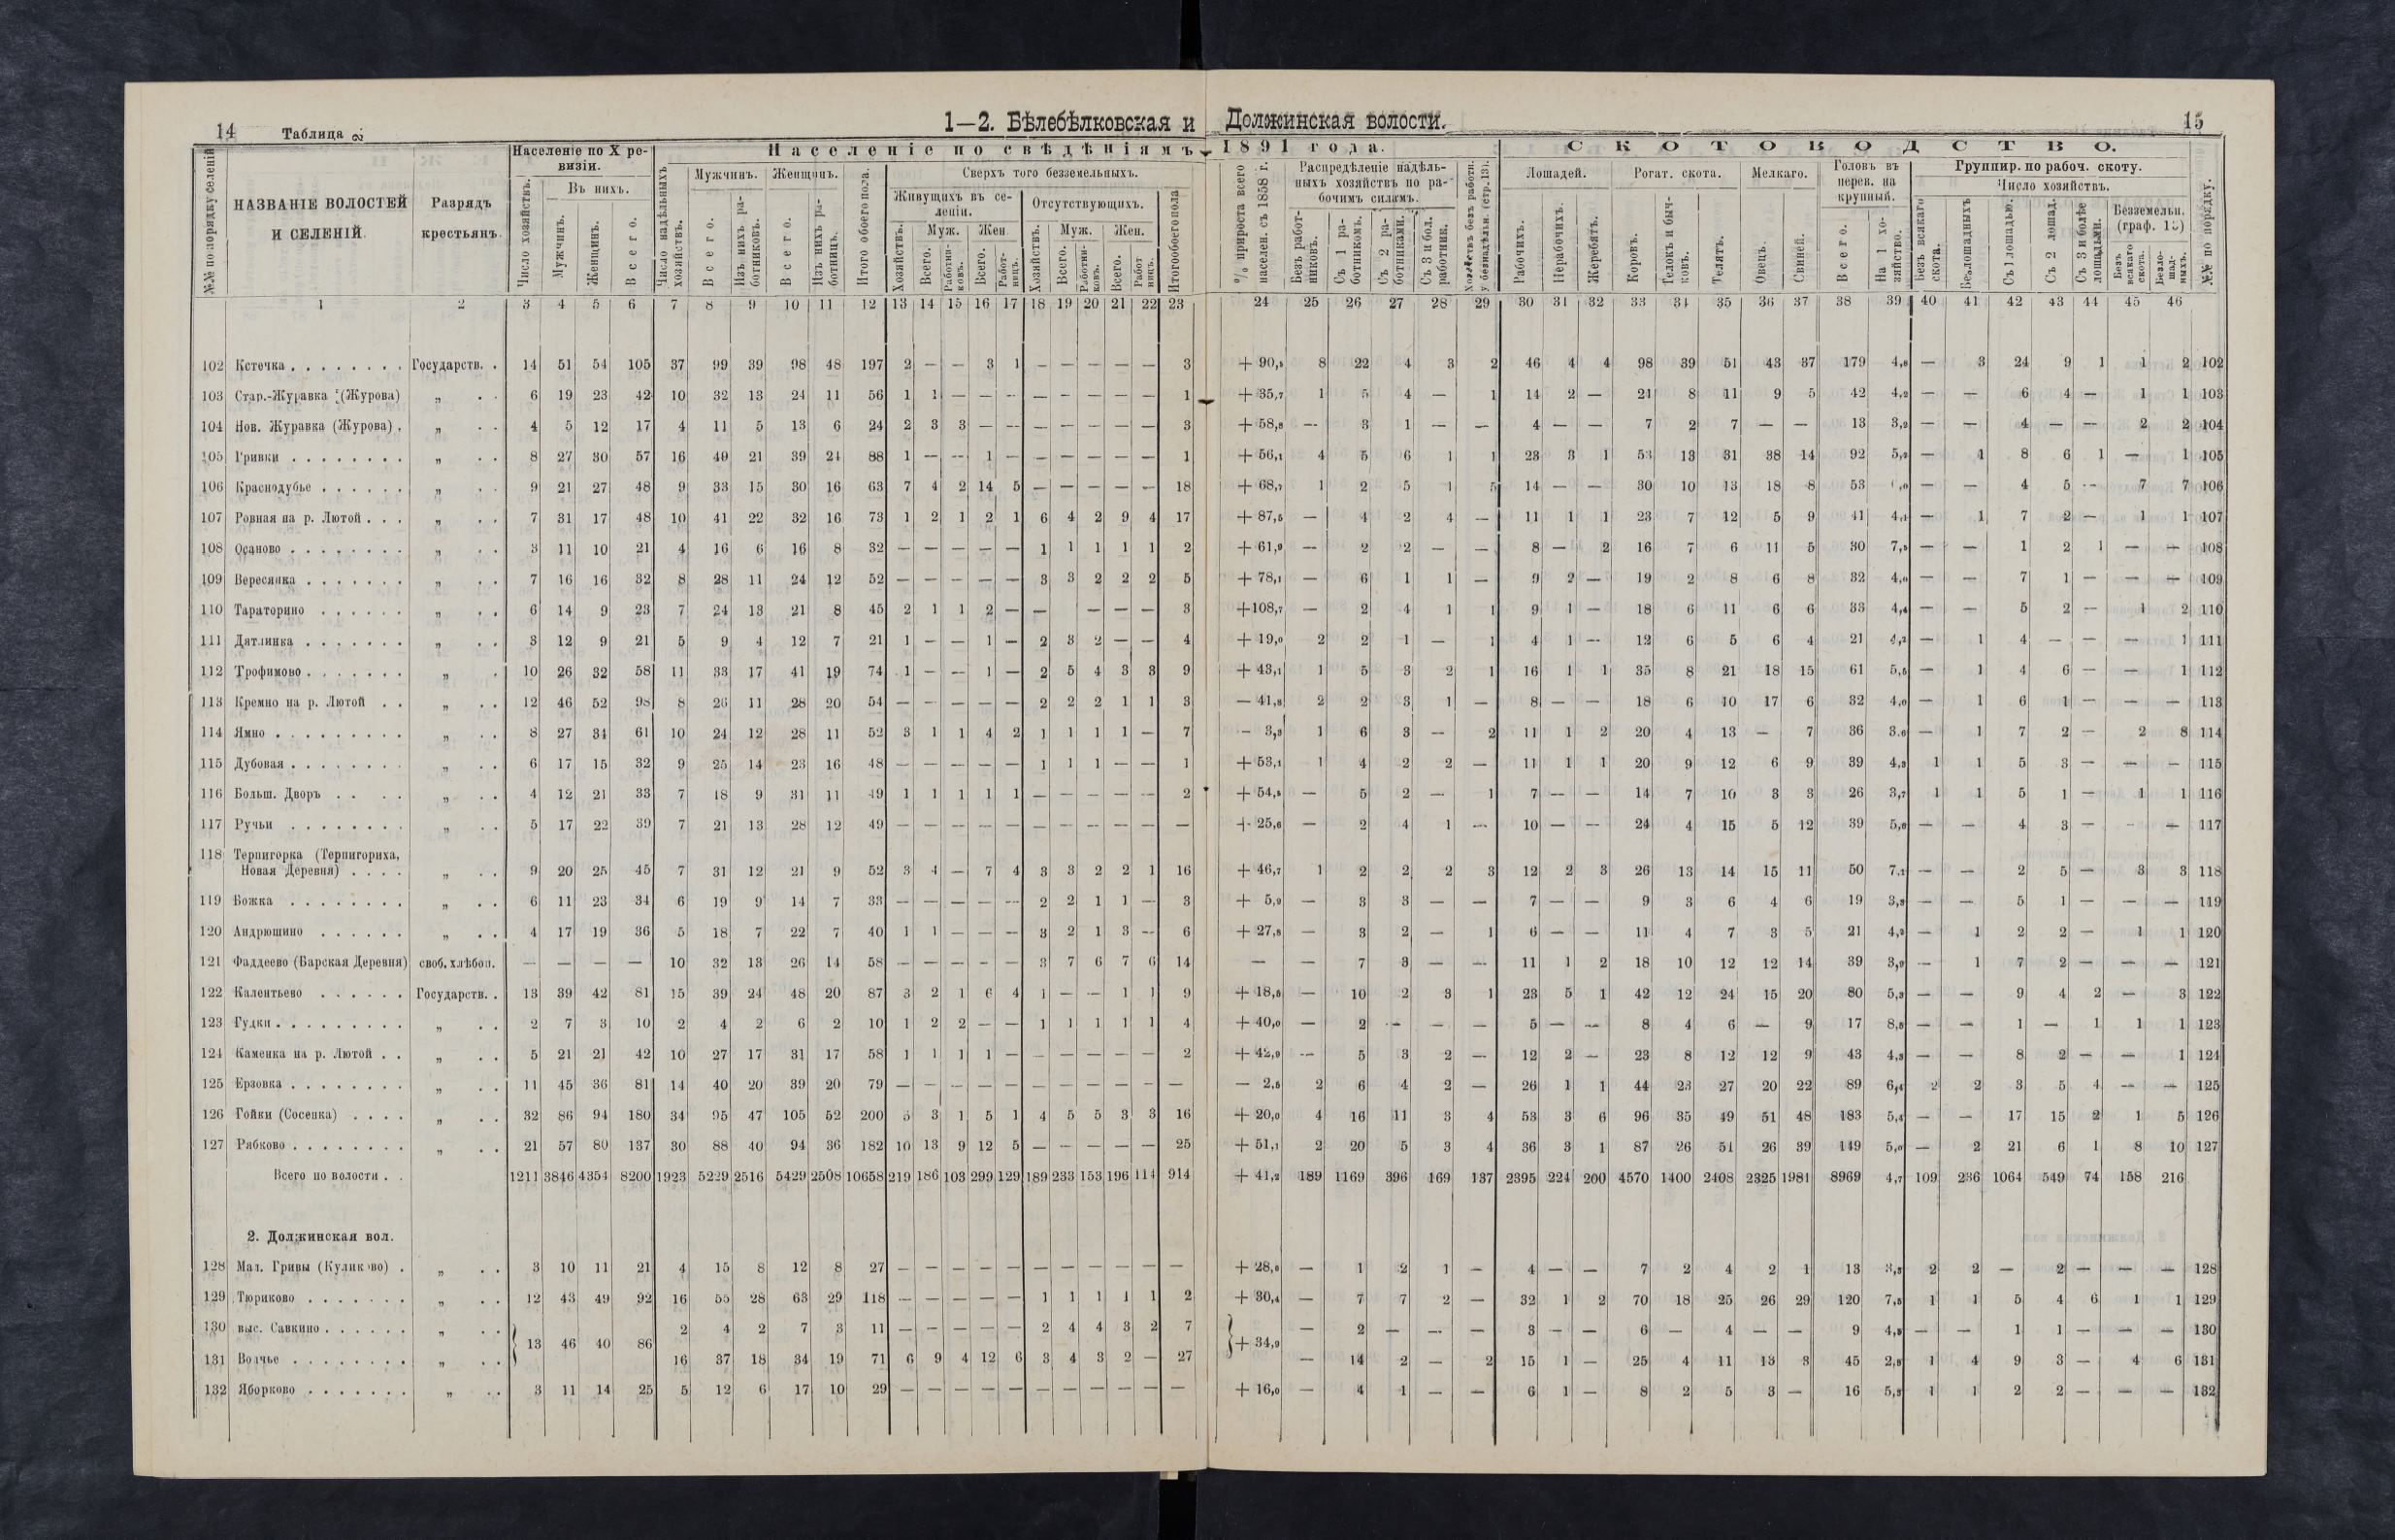 14 Таблица 2. 1—2. Бѣлебѣлковская и Должинская волости. 15
№№ по порядку селеній НАЗВАНІЕ ВОЛОСТЕЙ И СЕЛЕНІЙ. Разрядъ крестьянъ. Населеніе по X ревизіи. Населеніе по свѣдѣніямъ 1891 года. СКОТОВОДСТВО.
Число хозяйствъ. Въ нихъ. Мужчинъ. Женщинъ. Всего.
Число надѣльныхъ хозяйствъ. Мужчинъ. Всего. Изъ нихъ работниковъ. Женщинъ. Всего. Изъ нихъ работницъ. Итого обоего пола.
Сверхъ того безземельныхъ. Живущихъ въ селеніи. Хозяйствъ. Муж. Всего. Работниковъ. Жен. Всего. Работницъ.
Отсутствующихъ. Хозяйствъ. Муж. Всего. Работниковъ. Жен. Всего. Работницъ. Итого обоего пола
% прироста всего населен. съ 1858 г. Распредѣленіе надѣльныхъ хозяйствъ по рабочимъ силамъ. Безъ работниковъ. Съ 1 работникомъ. Съ 2 работниками. Съ 3 и бол. работник. Хозяйствъ безъ работн. у безнадѣльн. (стр. 13).
Лошадей. Рабочихъ. Нерабочихъ. Жеребятъ. Рогат. скота. Коровъ. Телокъ и бычковъ. Телятъ. Мелкаго. Овецъ. Свиней. Головъ въ перев. на крупный. Всего. На 1 хозяйство.
Группир. по рабоч. скоту. Число хозяйствъ. Безъ всякаго скота. Безлошадныхъ Съ 1 лошадью. Съ 2 лошад. Съ 3 и болѣе лошадьми. Безземельн. (граф. 13) Безъ всякаго скота. Безлошадныхъ. №№ по порядку.
1 2 3 4 5 6 7 8 9 10 11 12 13 14 15 16 17 18 19 20 21 22 23 24 25 26 27 28 29 30 31 32 33 34 35 36 37 38 39 40 41 42 43 44 45 46
102 Кстечка Государств. 14 51 54 105 37 99 39 98 48 197 2 — — 3 1 — — — — — 3 + 90,5 8 22 4 3 2 46 4 4 98 39 51 43 37 179 4,8 — 3 24 9 1 1 2 102
103 Стар.-Журавка (Журова) „ 6 19 23 42 10 32 13 24 11 56 1 1 — — — — — — — — 1 + 35,7 1 5 4 — 1 14 2 — 21 8 11 9 5 42 4,2 — — 6 4 — 1 1 103
104 Нов. Журавка (Журова) „ 4 5 12 17 4 11 5 13 6 24 2 3 3 — — — — — — — 3 + 58,8 — 3 1 — — 4 — — 7 2 7 — — 13 3,2 — — 4 — — 2 2 104
105 Гривки „ 8 27 30 57 16 49 21 39 21 88 1 — — 1 — — — — — — 1 + 56,1 4 5 6 1 1 23 3 1 53 13 31 38 14 92 5,2 — 1 8 6 1 — 1 105
106 Краснодубье „ 9 21 27 48 9 33 15 30 16 63 7 4 2 14 5 — — — — — 18 + 68,7 1 2 5 1 5 14 — — 30 10 13 18 8 53 — — 4 5 — 7 7 106
107 Ровная на р. Лютой „ 7 31 17 48 10 41 22 32 16 73 1 2 1 2 1 6 4 2 9 4 17 + 87,5 — 4 2 4 — 11 1 1 23 7 12 5 9 41 4,1 — 1 7 2 — 1 1 107
108 Осаново „ 3 11 10 21 4 16 6 16 8 32 — — — — — 1 1 1 1 1 2 + 61,9 — 2 2 — — 8 — 2 16 7 6 11 5 30 7,5 — — 1 2 1 — — 108
109 Вересянка „ 7 16 16 32 8 28 11 24 12 52 — — — — — 3 3 2 2 2 5 + 78,1 — 6 1 1 — 9 2 — 19 2 8 6 8 32 4,0 — — 7 1 — — — 109
110 Тараторино „ 6 14 9 23 7 24 13 21 8 45 2 1 1 2 — — — — — 3 +108,7 — 2 4 1 1 9 1 — 18 6 11 6 6 33 4,4 — — 5 2 — 1 2 110
111 Дятлинка „ 3 12 9 21 5 9 4 12 7 21 1 — — 1 — 2 3 2 — — 4 + 19,0 2 2 1 — 1 4 1 — 12 6 5 6 4 21 4,2 — 1 4 — — — 1 111
112 Трофимово „ 10 26 32 58 11 33 17 41 19 74 1 — — 1 — 2 5 4 3 3 9 + 43,1 1 5 3 2 1 16 1 1 35 8 21 18 15 61 5,5 — 1 4 6 — — 1 112
113 Кремно на р. Лютой „ 12 46 52 98 8 26 11 28 20 54 — — — — — 2 2 2 1 1 3 — 41,8 2 2 3 1 — 8 — — 18 6 10 17 6 32 4,0 — 1 6 1 — — — 113
114 Ямно „ 8 27 34 61 10 24 12 28 11 52 3 1 1 4 2 1 1 1 1 — 7 — 3,3 1 6 3 — 2 11 1 2 20 4 13 — 7 36 3,6 — 1 7 2 — 2 8 114
115 Дубовая „ 6 17 15 32 9 25 14 23 16 48 — — — — — 1 1 1 — — 1 + 53,1 1 4 2 2 — 11 1 1 20 9 12 6 9 39 4,3 1 1 5 3 — — — 115
116 Больш. Дворъ „ 4 12 21 33 7 18 9 31 11 49 1 1 1 1 1 — — — — — 2 + 54,5 — 5 2 — 1 7 — — 14 7 10 3 3 26 3,7 1 1 5 1 — 1 1 116
117 Ручьи „ 5 17 22 39 7 21 13 28 12 49 — — — — — — — — — — — + 25,6 — 2 4 1 — 10 — — 24 4 15 5 12 39 5,6 — — 4 3 — — — 117
118 Терпигорка (Терпигориха,
Новая Деревня) „ 9 20 25 45 7 31 12 21 9 52 3 4 — 7 4 3 3 2 2 1 16 + 46,7 1 2 2 2 3 12 2 3 26 13 14 15 11 50 7,1 — — 2 5 — 3 3 118
119 Божка „ 6 11 23 34 6 19 9 14 7 33 — — — — — 2 2 1 1 — 3 + 5,9 — 3 3 — — 7 — — 9 3 6 4 6 19 3,3 — — 5 1 — — — 119
120 Андрюшино „ 4 17 19 36 5 18 7 22 7 40 1 1 — — — 3 2 1 3 — 6 + 27,8 — 3 2 — 1 6 — — 11 4 7 3 5 21 4,2 — 1 2 2 — 1 1 120
121 Фаддеево (Барская Деревня) своб. хлѣбоп. — — — — 10 32 13 26 14 58 — — — — — 3 7 6 7 6 14 — — 7 3 — — 11 1 2 18 10 12 12 14 39 3,9 — 1 7 2 — — — 121
122 Калентьево Государств. 13 39 42 81 15 39 24 48 20 87 3 2 1 6 4 1 — — 1 1 9 + 18,5 — 10 2 3 1 23 5 1 42 12 24 15 20 80 5,3 — — 9 4 2 — 3 122
123 Гудки „ 2 7 3 10 2 4 2 6 2 10 1 2 2 — — 1 1 1 1 1 4 + 40,0 — 2 — — — 5 — — 8 4 6 — 9 17 8,5 — — 1 — 1 1 1 123
124 Каменка на р. Лютой „ 5 21 21 42 10 27 17 31 17 58 1 1 1 1 — — — — — — 2 + 42,9 — 5 3 2 — 12 2 — 23 8 12 12 9 43 4,3 — — 8 2 — — 1 124
125 Ерзовка „ 11 45 36 81 14 40 20 39 20 79 — — — — — — — — — — — — 2,5 2 6 4 2 — 26 1 1 44 23 27 20 22 89 6,4 2 2 3 5 4 — — 125
126 Гойки (Сосенка) „ 32 86 94 180 34 95 47 105 52 200 5 3 1 5 1 4 5 5 3 3 16 + 20,0 4 16 11 3 4 53 3 6 96 35 49 51 48 183 5,4 — — 17 15 2 1 5 126
127 Рябково „ 21 57 80 137 30 88 40 94 36 182 10 13 9 12 5 — — — — — 25 + 51,1 2 20 5 3 4 36 3 1 87 26 51 26 39 149 5,0 — 2 21 6 1 8 10 127
Всего по волости 1211 3846 4354 8200 1923 5229 2516 5429 2508 10658 219 186 103 299 129 189 233 153 196 114 914 + 41,2 189 1169 396 169 137 2395 224 200 4570 1400 2408 2325 1981 8969 4,7 109 236 1064 549 74 158 216
2. Должинская вол.
128 Мал. Гривы (Куликово) „ 3 10 11 21 4 15 8 12 8 27 — — — — — — — — — — — + 28,6 — 1 2 1 — 4 — — 7 2 4 2 1 13 3,3 2 2 — 2 — — — 128
129 Тюриково „ 12 43 49 92 16 55 28 63 29 118 — — — — — 1 1 1 1 1 2 + 30,4 — 7 7 2 — 32 1 2 70 18 25 26 29 120 7,5 1 1 5 4 6 1 1 129
130 выс. Савкино „ 2 4 2 7 3 11 — — — — — 2 4 4 3 2 7 — 2 — — — 3 — — 6 — 4 — — 9 4,5 — — 1 1 — — — 130
13 46 40 86 + 34,9
131 Волчье „ 16 37 18 34 19 71 6 9 4 12 6 3 4 3 2 — 27 — 14 2 — 2 15 1 — 25 4 11 13 3 45 2,8 1 4 9 3 — 4 6 131
132 Яборково „ 3 11 14 25 5 12 6 17 10 29 — — — — — — — — — — — + 16,0 — 4 1 — — 6 1 — 8 2 5 3 — 16 5,3 1 1 2 2 — — — 132